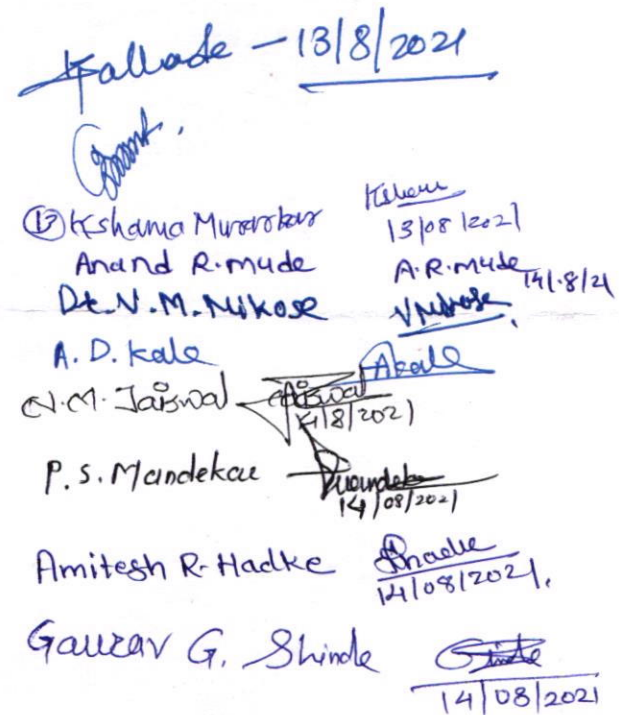 Kallade - 13/8/2021
17 Kshama Murarkar
13/08/2021
Anand R. Mude A.R.Mude 14/8/21
Dr. N. M. Nikose
A. D. Kale AKale
N.M. Jaiswal Jaiswal
14/8/2021
P. S. Mandekar
14/08/2021
Amitesh R. Hadke
14/08/2021.
Gaurav G. Shinde
14/08/2021